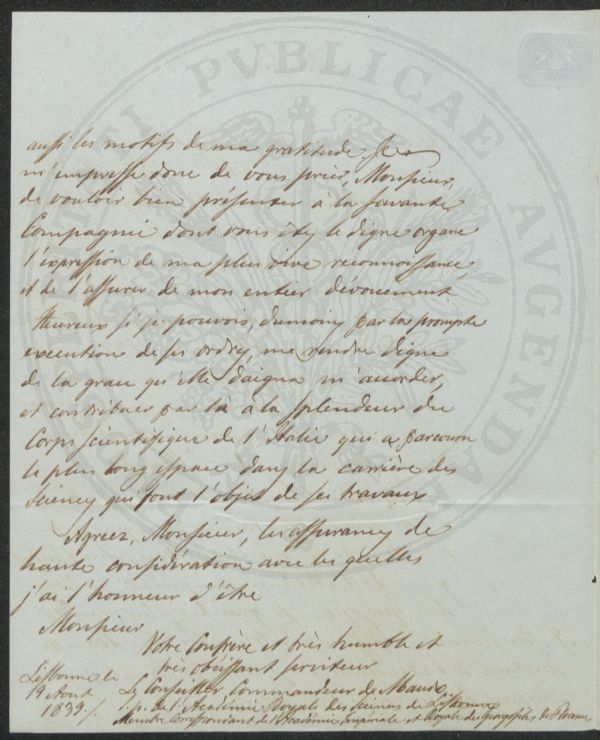 aussi les motifs de ma gratitude. Je
m'empresse donc de vous prier, Monsieur,
de vouloir bien présenter à la savante
Compagnie dont vous étes le digne organe
l'expression de ma plus vive reconnoissance,
et de l'assurer de mon entier dévouement
Heureux si je pouvois, dumoins par la prompte
execution de ses ordres, me rendre digne
de la grace qu'elle daigna m'accorder,
et contribuer par là à la splendeur du
Corps scientifique de l'Italie qui a parcouru
le plus long espace dans la carrière des
sciences qui font l'objet de ses travaux
Agréez, Monsieur, les assurances de
haute considération avec les quelles
j'ai l'honneur d'être
Monsieur
Votre Confrère et très humble et
très obéissant serviteur
Lisbonne le
19 Aout
1839.
Le Conseiller Commandeur de Macedo
S. p. de l'Académie Royale des Sciences de Lisbonne
Membre Correspondant de l'Académie Impériale et Royale des Georgofiles de Florence
PVBLICAE
AVGENDAE